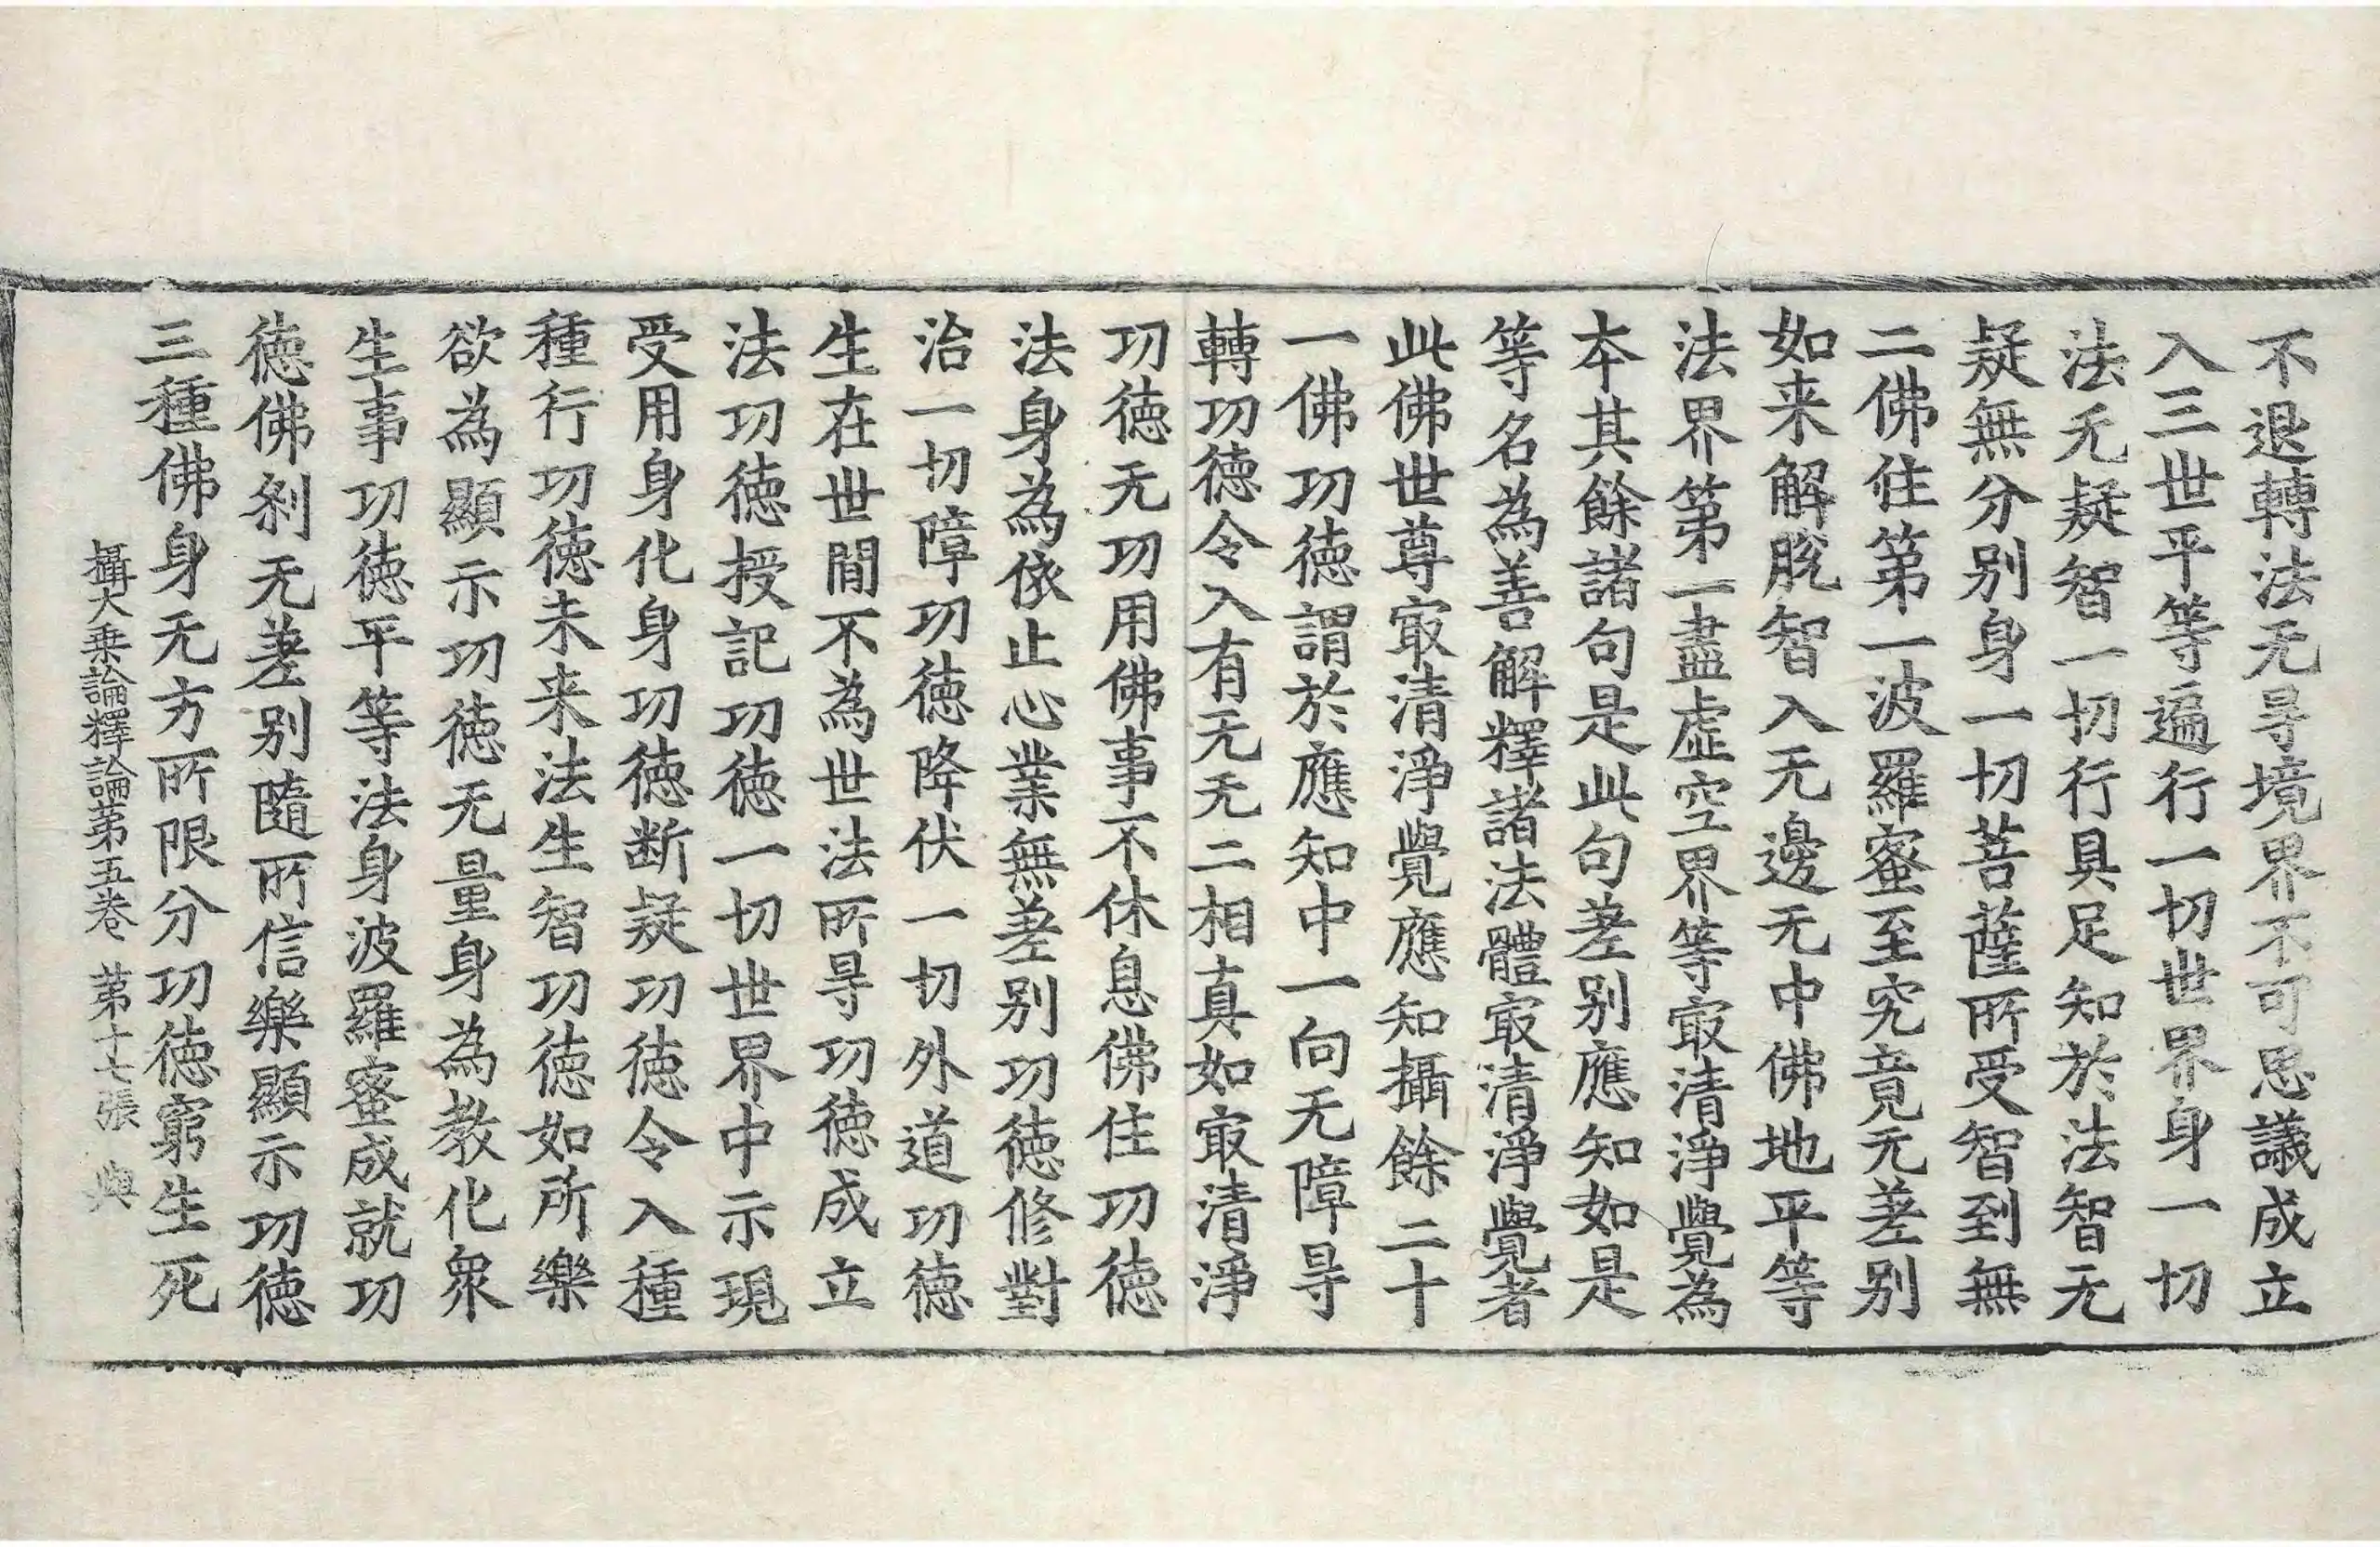 不退轉法无㝵境界不可思議成立
入三世平等遍行一切世界身一切
法无疑智一切行具足知於法智无
疑無分别身一切菩薩所受智到無
二佛住第一波羅蜜至究竟无差别
如来解脫智入无邊无中佛地平等
法界第一盡虛空界等㝡清淨覺為
本其餘諸句是此句差别應知如是
等名為善解釋諸法體㝡清淨覺者
此佛世尊㝡清淨覺應知攝餘二十
一佛功徳謂於應知中一向无障㝵
轉功徳令入有无无二相真如㝡清淨
功徳无功用佛事不休息佛住功徳
法身為依止心業無差别功徳修對
治一切障功徳降伏一切外道功徳
生在世間不為世法所㝵功徳成立
法功徳授記功徳一切世界中示現
受用身化身功徳断疑功徳令入種
種行功徳未来法生智功徳如所樂
欲為顯示功徳无量身為教化衆
生事功徳平等法身波羅蜜成就功
徳佛刹无差别隨所信樂顯示功徳
三種佛身无方所限分功徳窮生死
攝大乗論釋論第五卷 第十七張 與